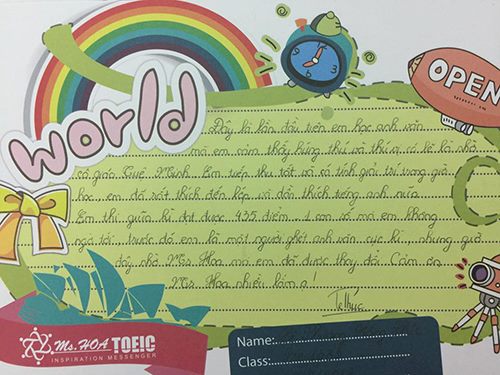 world
OPEN
Đây là lần đầu tiên em học anh văn
mà em cảm thấy hứng thú và thú vị có lẽ là nhờ
cô giáo Quế Minh làm tiếp thu tốt và có tính giải trí trong giờ
học em đã rất thích đến lớp và dần thích tiếng anh nữa
Em thi quân kì đạt được 435 điểm 1 con số mà em không
ngờ tới trước đó em là một người ghét anh văn cực kì nhưng giờ
đây nhờ Ms Hoa mà em đã được thay đổi Cảm ơn
Ms. Hoa nhiều lắm ạ!
Ms. HOA TOEIC
INSPIRATION MESSENGER
Name:
Class: